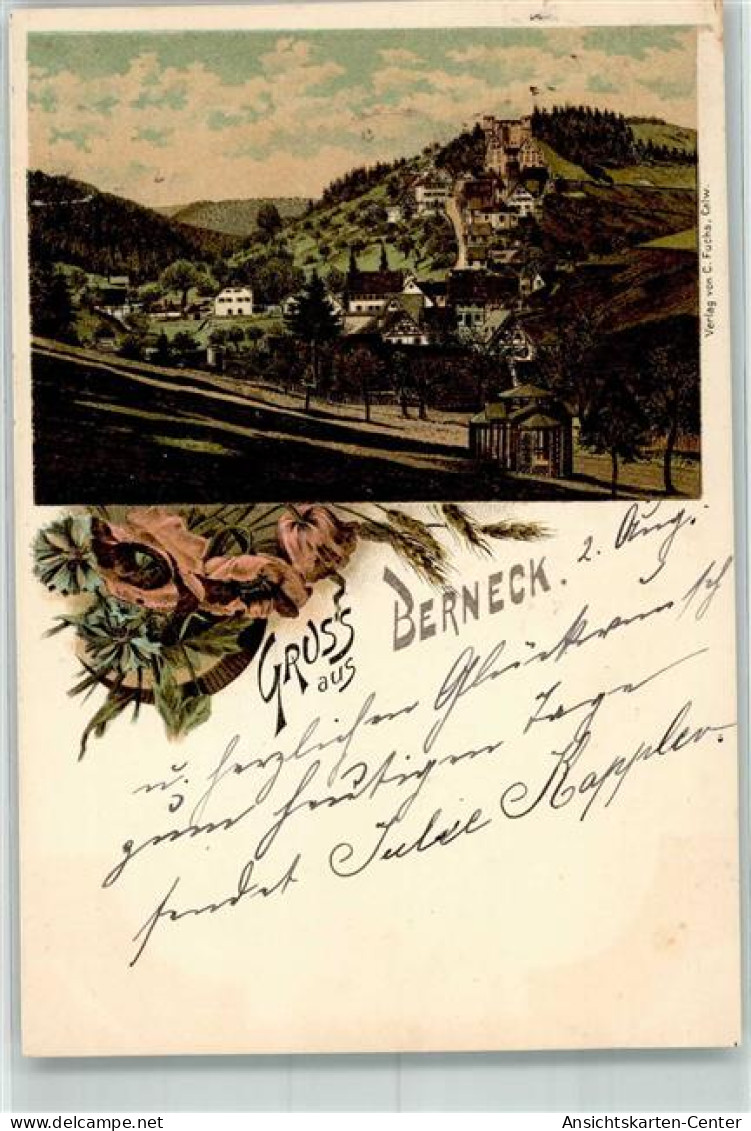 Verlag von C. Fuchs, Calw.
Gruss
aus
Berneck.
2. Aug.
u. herzlichen Glückwunsch
zum heutigen Tage
sendet Julie Kappler.
Ansichtskarten-Center